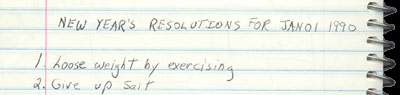 NEW YEAR'S RESOLUTIONS FOR JAN01 1990
1. Loose weight by exercising
2. Give up Salt